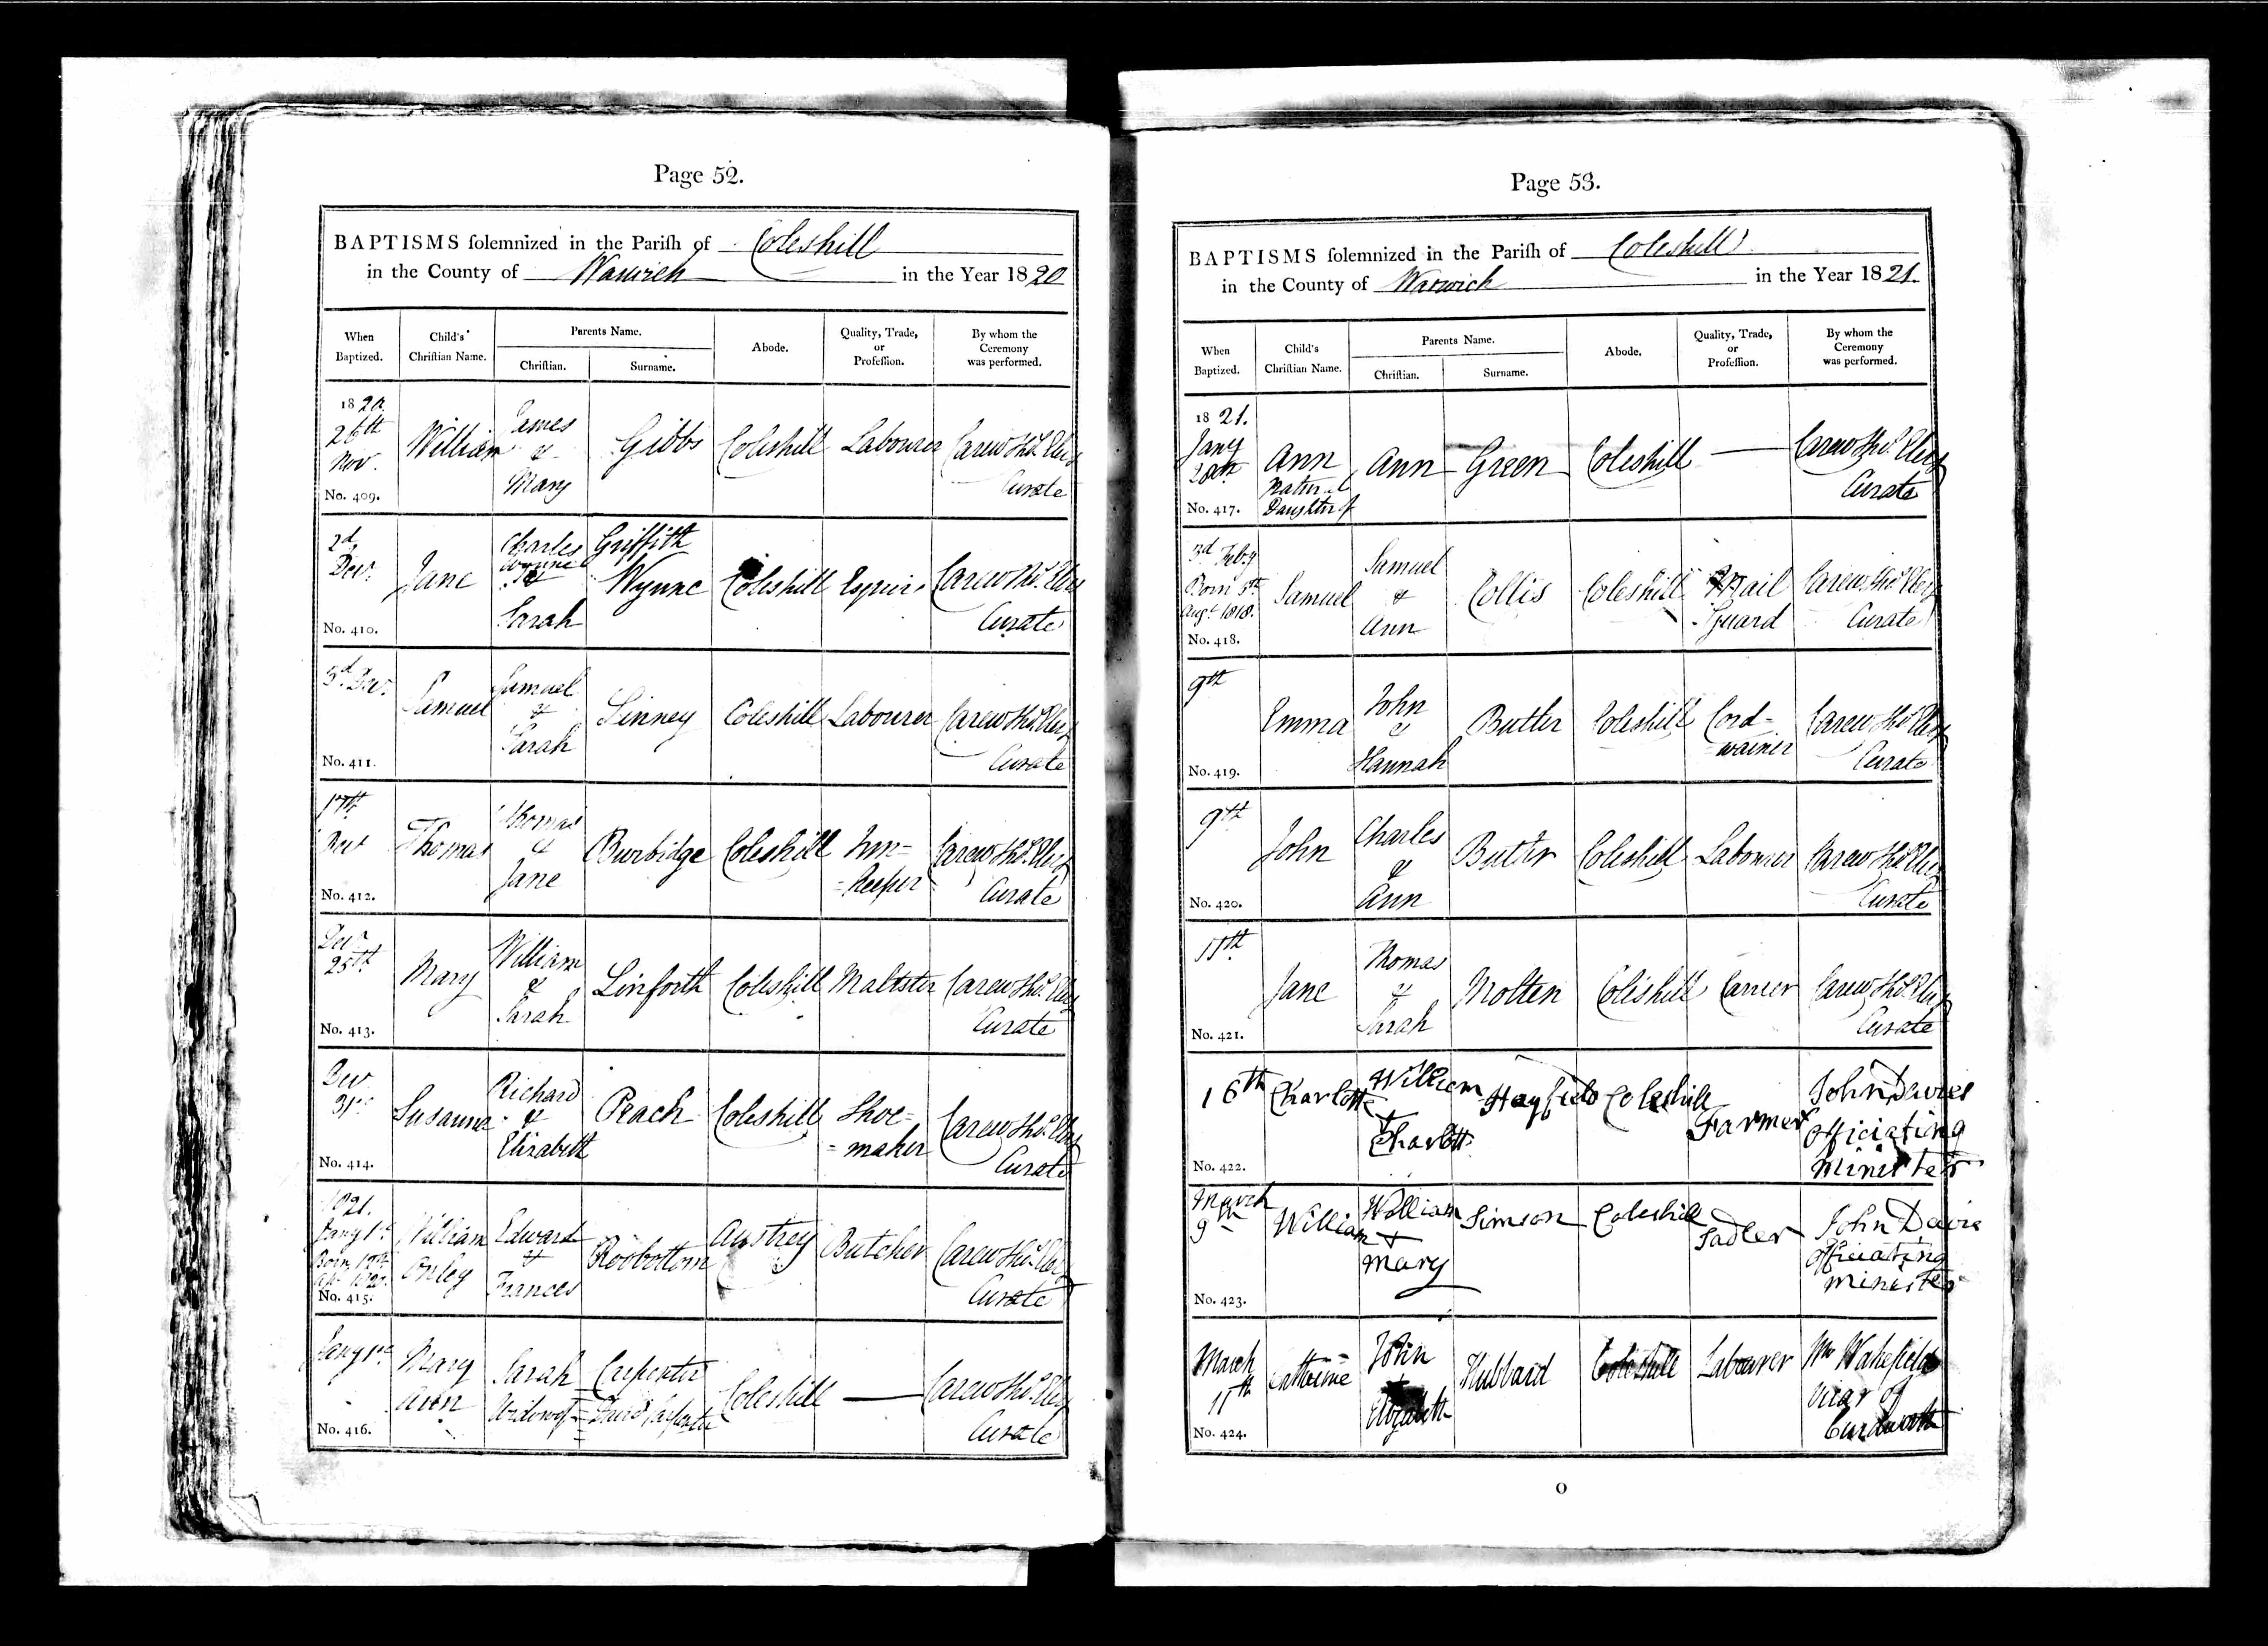 Page 52.
BAPTISMS solemnized in the Parish of Coleshill
in the County of Warwick in the Year 1820
When Baptized. Child's Christian Name. Parents Name. Christian. Surname. Abode. Quality, Trade, or Profession. By whom the Ceremony was performed.
1820. 26th Nov. No. 409. William James & Mary Gibbs Coleshill Labourer Carew Thos. Curate
2d Decr. No. 410. Jane Charles Wynne & Sarah Griffith Wynne Coleshill Esquire Carew Thos. Curate
3d Decr. No. 411. Samuel Samuel & Sarah Coleshill Labourer Carew Thos. Curate
17th No. 412. Thomas Thomas & Jane Burbidge Coleshill Inn= =keeper Carew Thos. Curate
Decr 25th No. 413. Mary William & Sarah Linforth Coleshill Maltster Carew Thos. Curate
Decr 31st No. 414. Susanna Richard & Elizabeth Peach Coleshill Shoe= =maker Carew Thos. Curate
1821. Jany 1st Born No. 415. William Onley Edward & Frances Roobottom Austrey Butcher Carew Thos. Curate
Jany 1st No. 416. Mary Ann Sarah Widow of Carpenter Carpenter Coleshill — Carew Thos. Curate
Page 53.
BAPTISMS solemnized in the Parish of Coleshill
in the County of Warwick in the Year 1821.
When Baptized. Child's Christian Name. Parents Name. Christian. Surname. Abode. Quality, Trade, or Profession. By whom the Ceremony was performed.
1821. Jany No. 417. Ann Natural Daughter of Ann Green Coleshill — Carew Thos. Curate
3d Feby Born 5th Augt. 1818. No. 418. Samuel Samuel & Ann Collis Coleshill Mail Guard Carew Thos. Curate
9th No. 419. Emma John & Hannah Butler Coleshill Cord= =wainer Carew Thos. Curate
9th No. 420. John Charles & Ann Butler Coleshill Labourer Carew Thos. Curate
11th No. 421. Jane Thomas & Sarah Molten Coleshill Carew Thos. Curate
16th No. 422. Charlotte William + Charlotte Hayfield Coleshill Farmer John Davies officiating minister
March 9th No. 423. William William + Mary Simson Coleshill Sadler John Davies officiating minister
March 11th No. 424. Catherine John + Elizabeth Hubbard Coleshill Labourer Wm Wakefield vicar of Curdworth
O